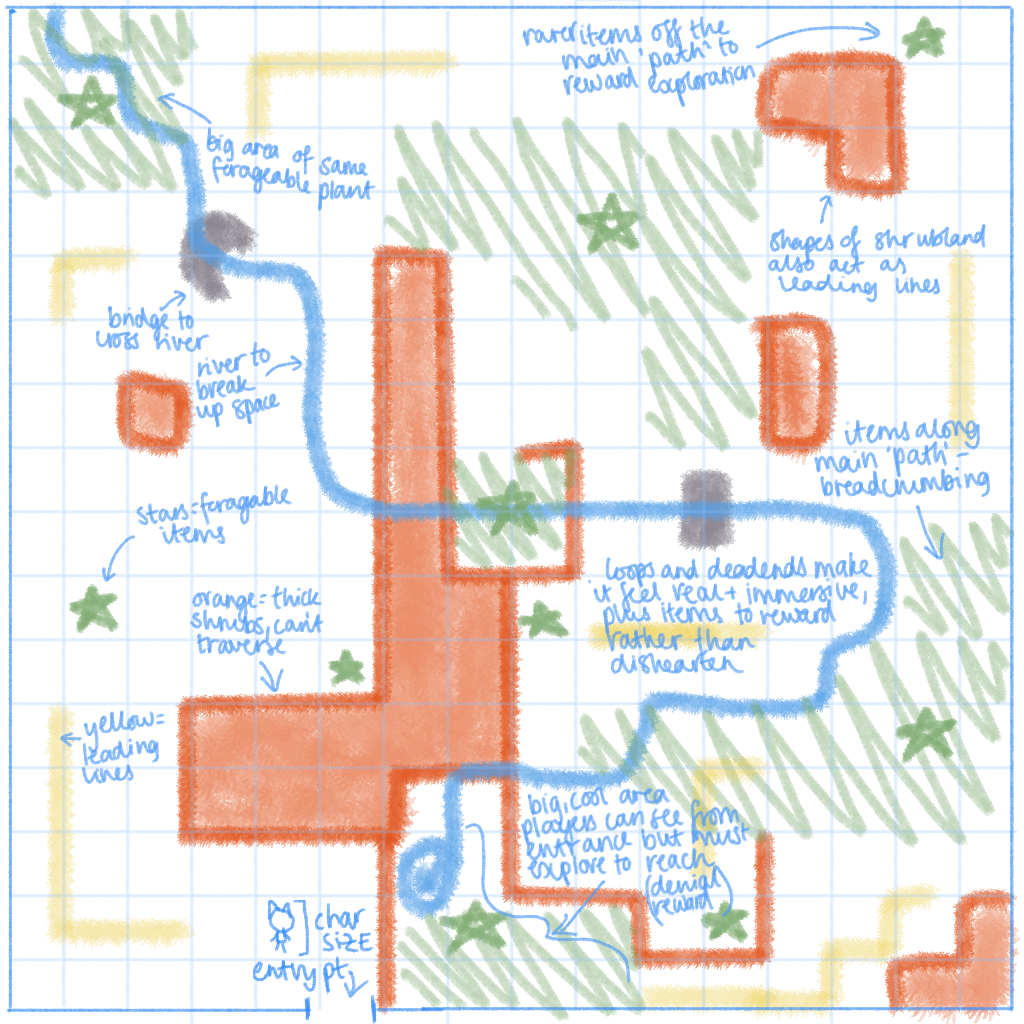 rarer items off the
main 'path' to
reward exploration
big area of same
forageable plant
shapes of shrubland
also act as
leading lines
bridge to
cross river
river to
break
up space
items along
main 'path' -
breadcrumbing
stars=foragable
items
orange= thick
shrubs, can't
traverse
loops and deadends make
it feel real + immersive,
plus items to reward
rather than
dishearten
yellow=
leading
lines
big, cool area
players can see from
entrance but must
explore to reach
(denial
reward)
char
SIZE
entry pt,